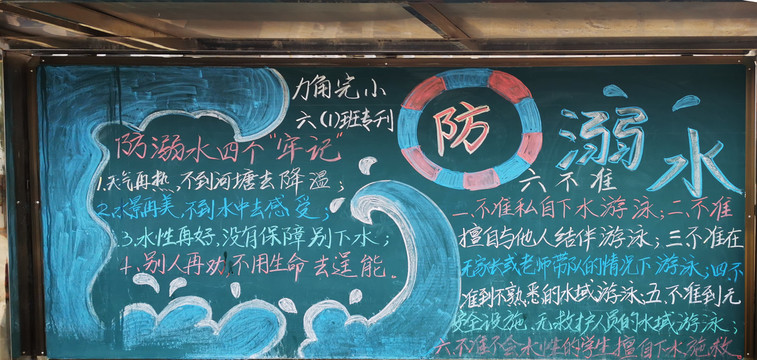 力角完小
六(1)班专刊
防溺水四个"牢记"
1.天气再热,不到河塘去降温;
2.水景再美,不到水中去感受;
3.水性再好,没有保障别下水;
4.别人再劝,不用生命去逞能。
防溺水
六不准
一.不准私自下水游泳;二.不准
擅自与他人结伴游泳;三.不准在
无家长或老师带队的情况下游泳;四不
准到不熟悉的水域游泳;五.不准到无
安全设施、无救护人员的水域游泳;
六.不准不会水性的学生擅自下水施救